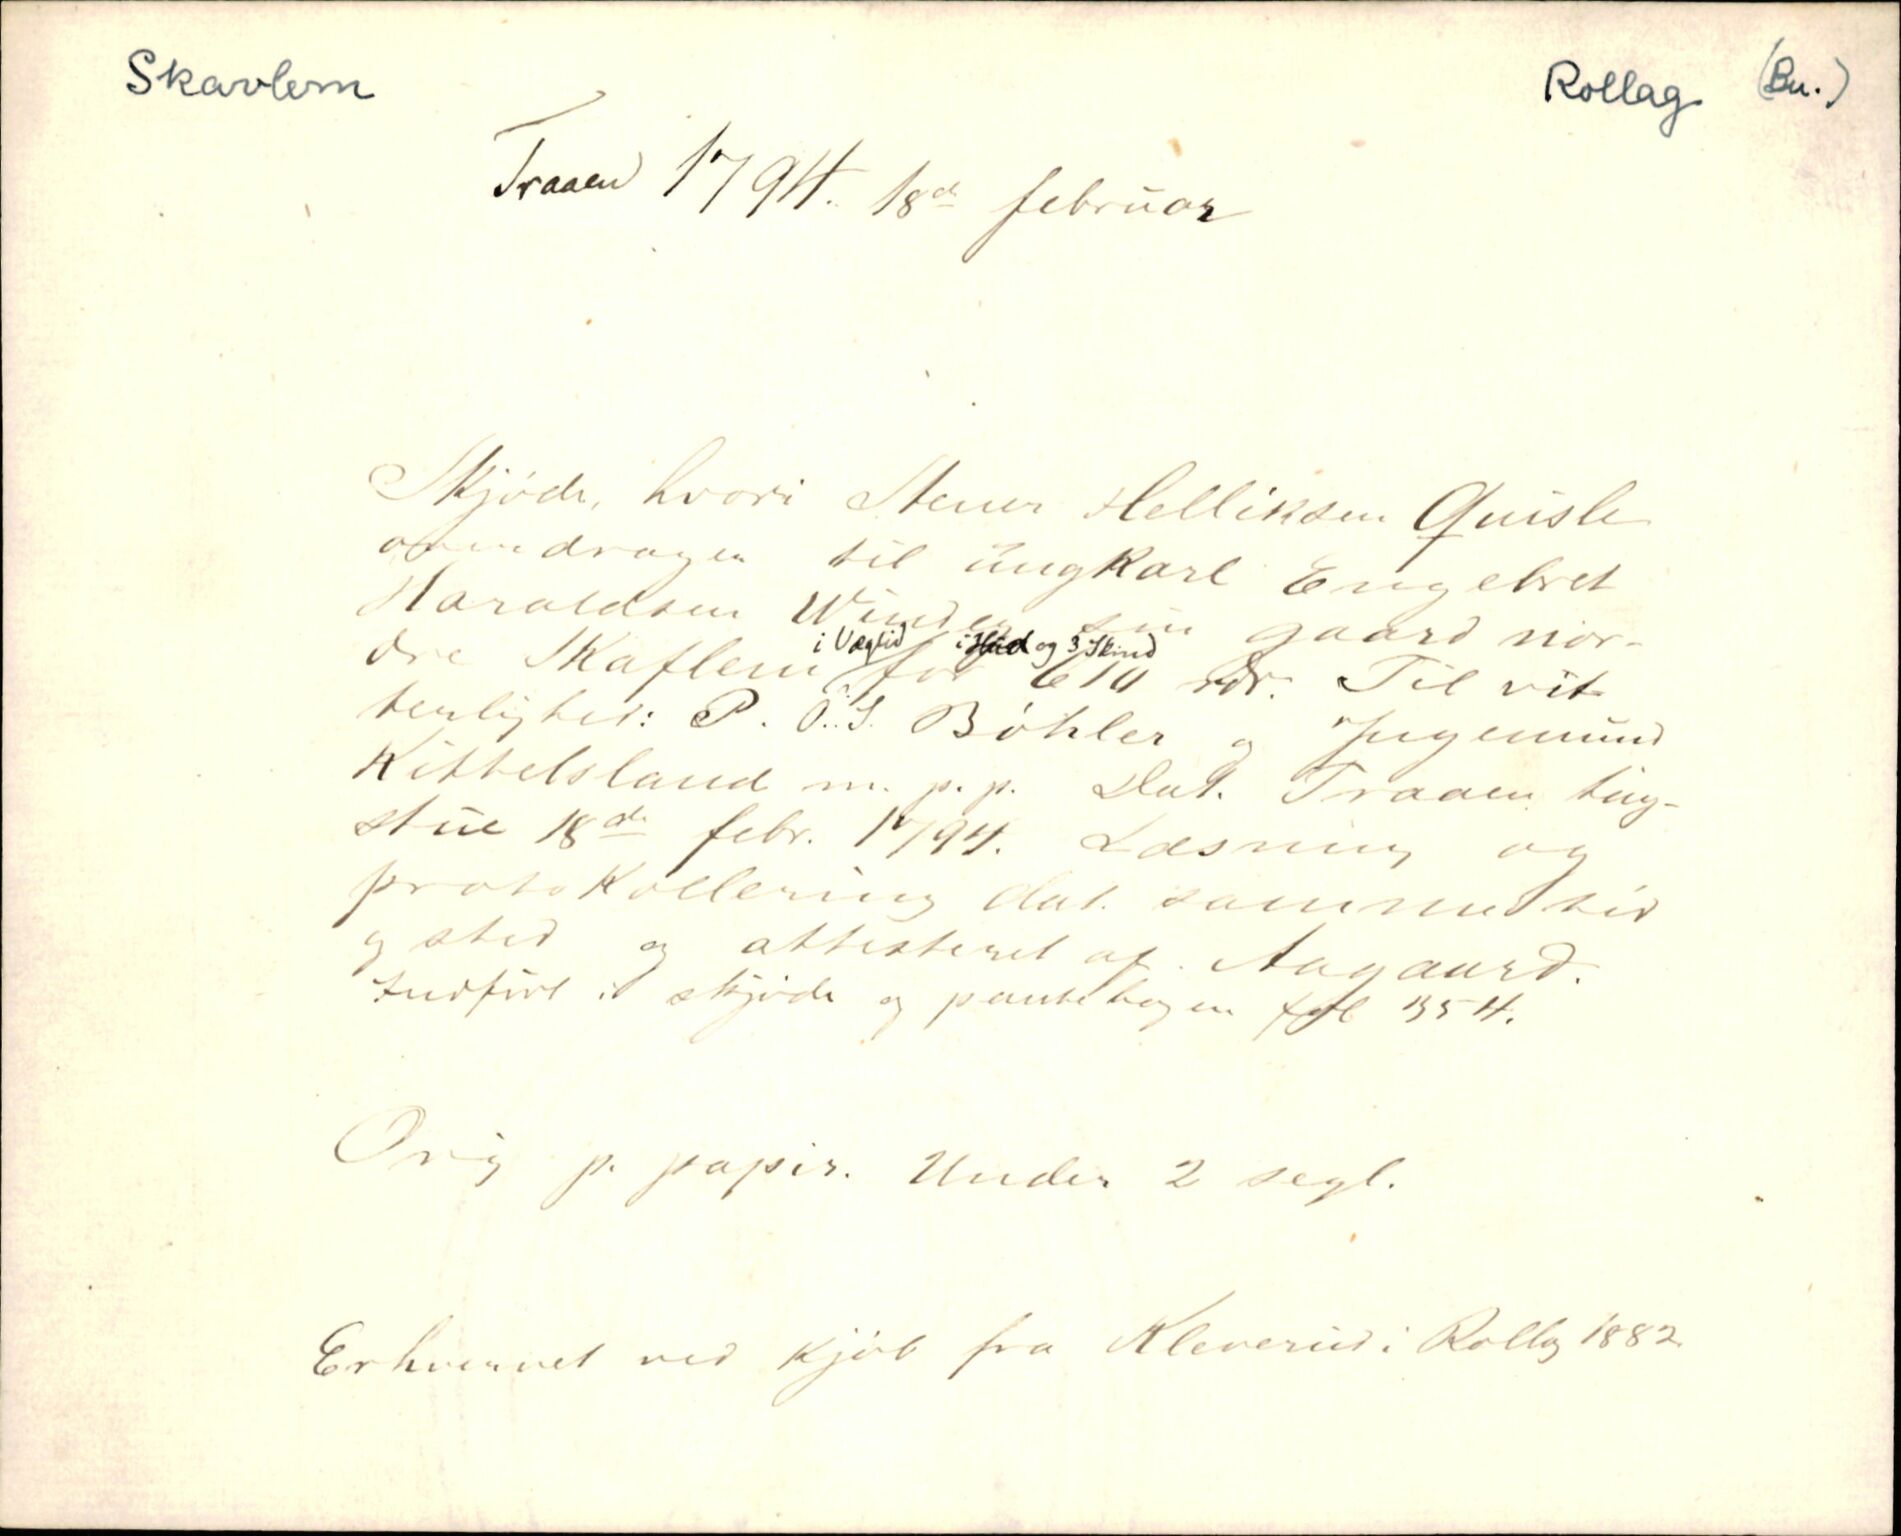 Skavlem
Rollag (Bu.)
Traaen 1794. 18de februar
Skjøde, hvori Stener Helliksen Quisle
overdragen til ungkarl Engelbret
Haraldsen Winden sin gaard nør-
i Væglid i Hud og 3 Skind
dre Skaflem for 610 rdr. Til vit-
terlighet: P. O. S. Bøhler og Jngemund
Kittelsland m. p. p. Dat. Traaen ting-
stue 18de febr. 1794. Læsning og
protokollering dat. samme tid
og sted og attesteret af Aagaard.
Indført i skjøde og pantebogen fol 354.
Orig p. papir. Under 2 segl.
Erhvervet ved kjøb fra Kleverud i Rollag 1882.